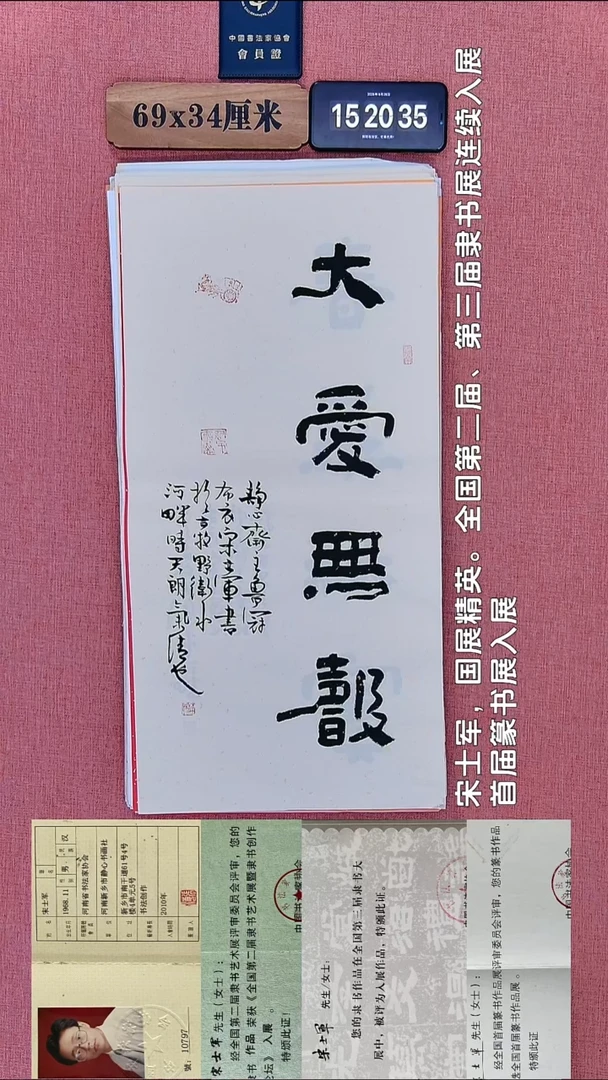 中國書法家協會
會員證
69x34厘米
15 20 35
大愛無聲
静心齋主魯冠
布衣宋士軍書
於古牧野衛水
河畔時天朗氣清也
宋士军，国展精英。全国第二届、第三届隶书展连续入展
首届篆书展入展
宋士军
1968.11
男
汉
河南省书法家协会
河南新乡市静心书画社
书法创作
2010年
號：10797
宋士军 先生（女士）：
经全国第二届隶书艺术展评审委员会评审，您的
隶书 作品 荣获《全国第二届隶书艺术展暨隶书创作
论坛》 入展 。
特颁此证！
宋士军 先生/女士：
您的隶书作品在全国第三届隶书大
展中，被评为入展作品，特颁此证。
士军 先生（女士）：
经全国首届篆书作品展评审委员会评审，您的篆书作品
全国首届篆书作品展。
特颁此证